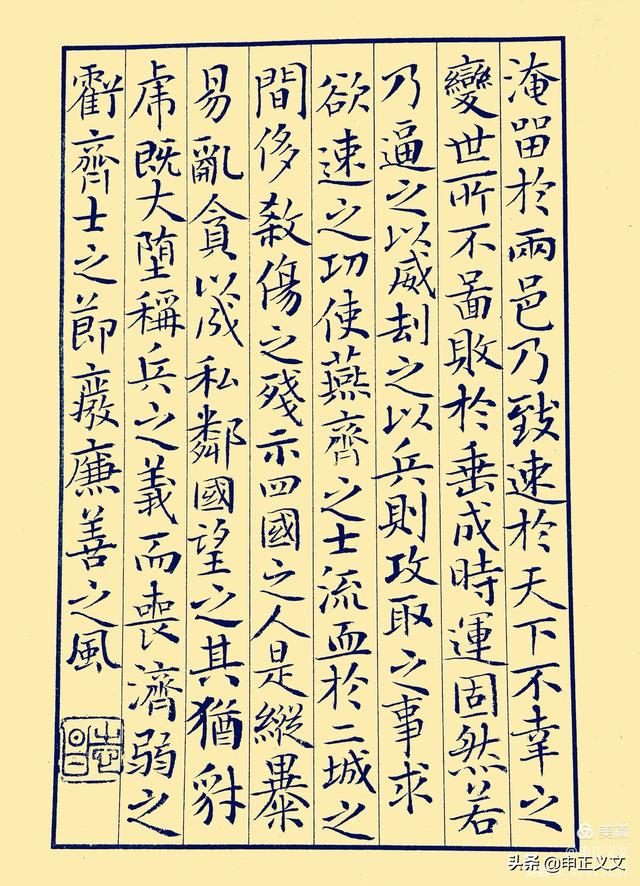 淹留於兩邑乃致速於天下不幸之
變世所不啚敗於垂成時運固然若
乃逼之以威刧之以兵則攻取之事求
欲速之功使燕齊之士流血於二城之
間侈殺傷之殘示四國之人是縱暴
易亂貪以成私鄰國望之其猶豺
虎既大墮稱兵之義而喪濟弱之
虧齊士之節廢廉善之風
美篇
@申正义文
头条 @申正义文